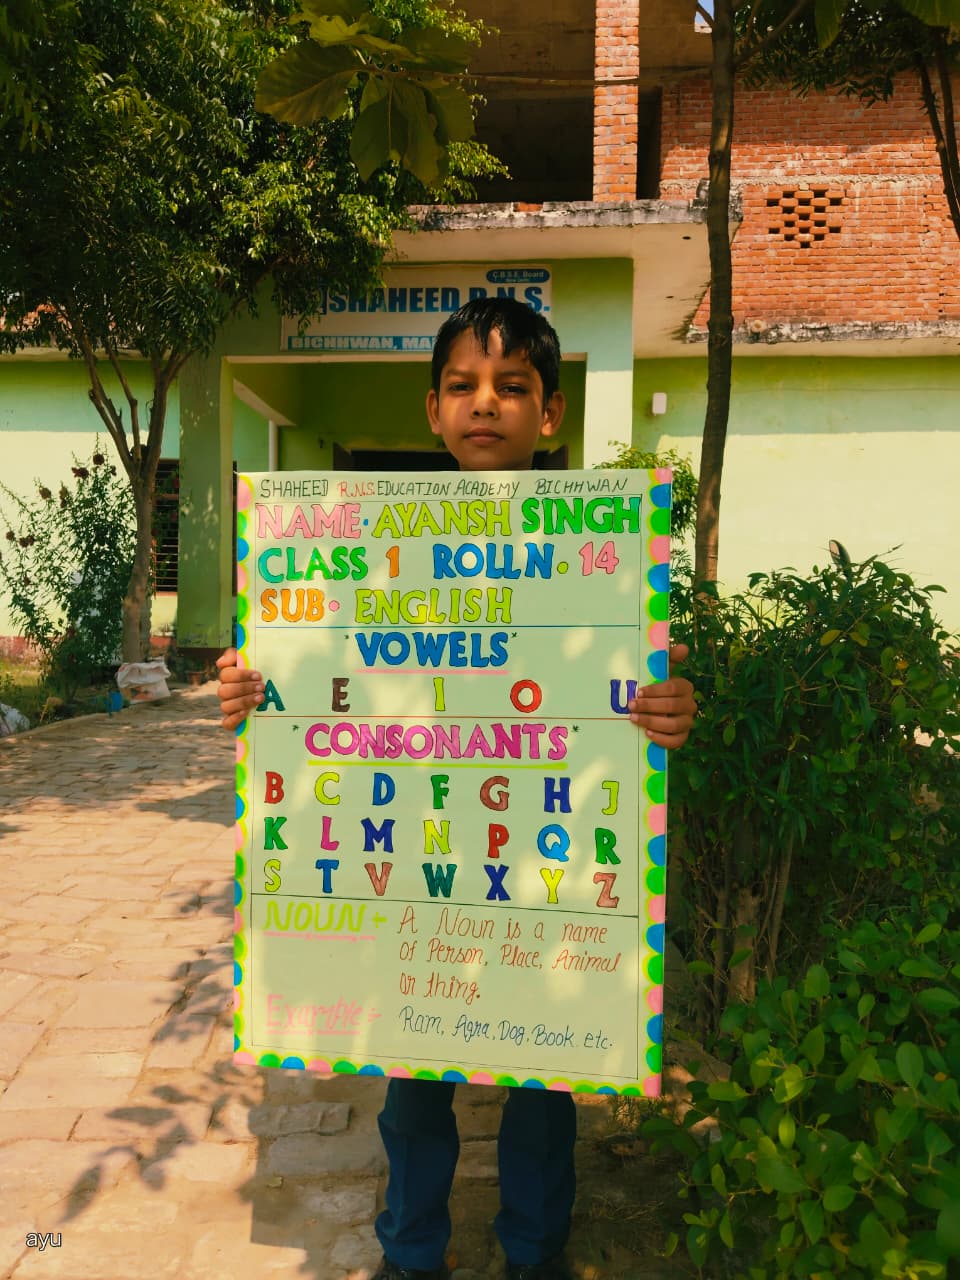 C.B.S.E. Board
New Delhi
SHAHEED R.N.S.
BICHHWAN,
SHAHEED R.N.S. EDUCATION ACADEMY BICHHWAN
NAME• AYANSH SINGH
CLASS 1 ROLL N• 14
SUB• ENGLISH
"VOWELS"
A E I O U
*CONSONANTS*
B C D F G H J
K L M N P Q R
S T V W X Y Z
NOUN + A Noun is a name
of Person, Place, Animal
or thing.
Example:- Ram, Agra, Dog, Book. etc.
ayu